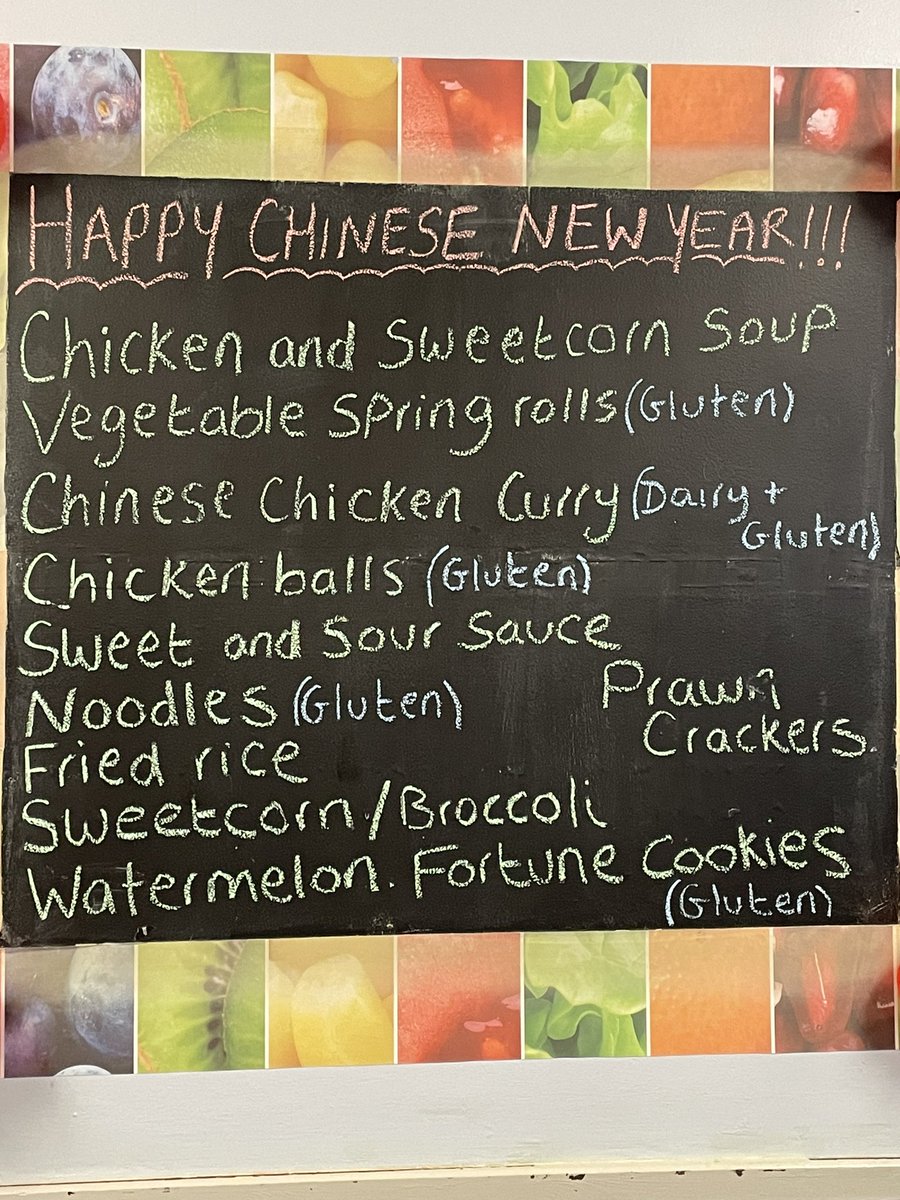 HAPPY CHINESE NEW YEAR!!!
Chicken and Sweetcorn Soup
Vegetable Spring rolls (Gluten)
Chinese Chicken Curry (Dairy +
Gluten)
Chicken balls (Gluten)
Sweet and Sour Sauce
Noodles (Gluten)
Prawn
Crackers.
Fried rice
Sweetcorn/Broccoli
Watermelon. Fortune Cookies
(Gluten)